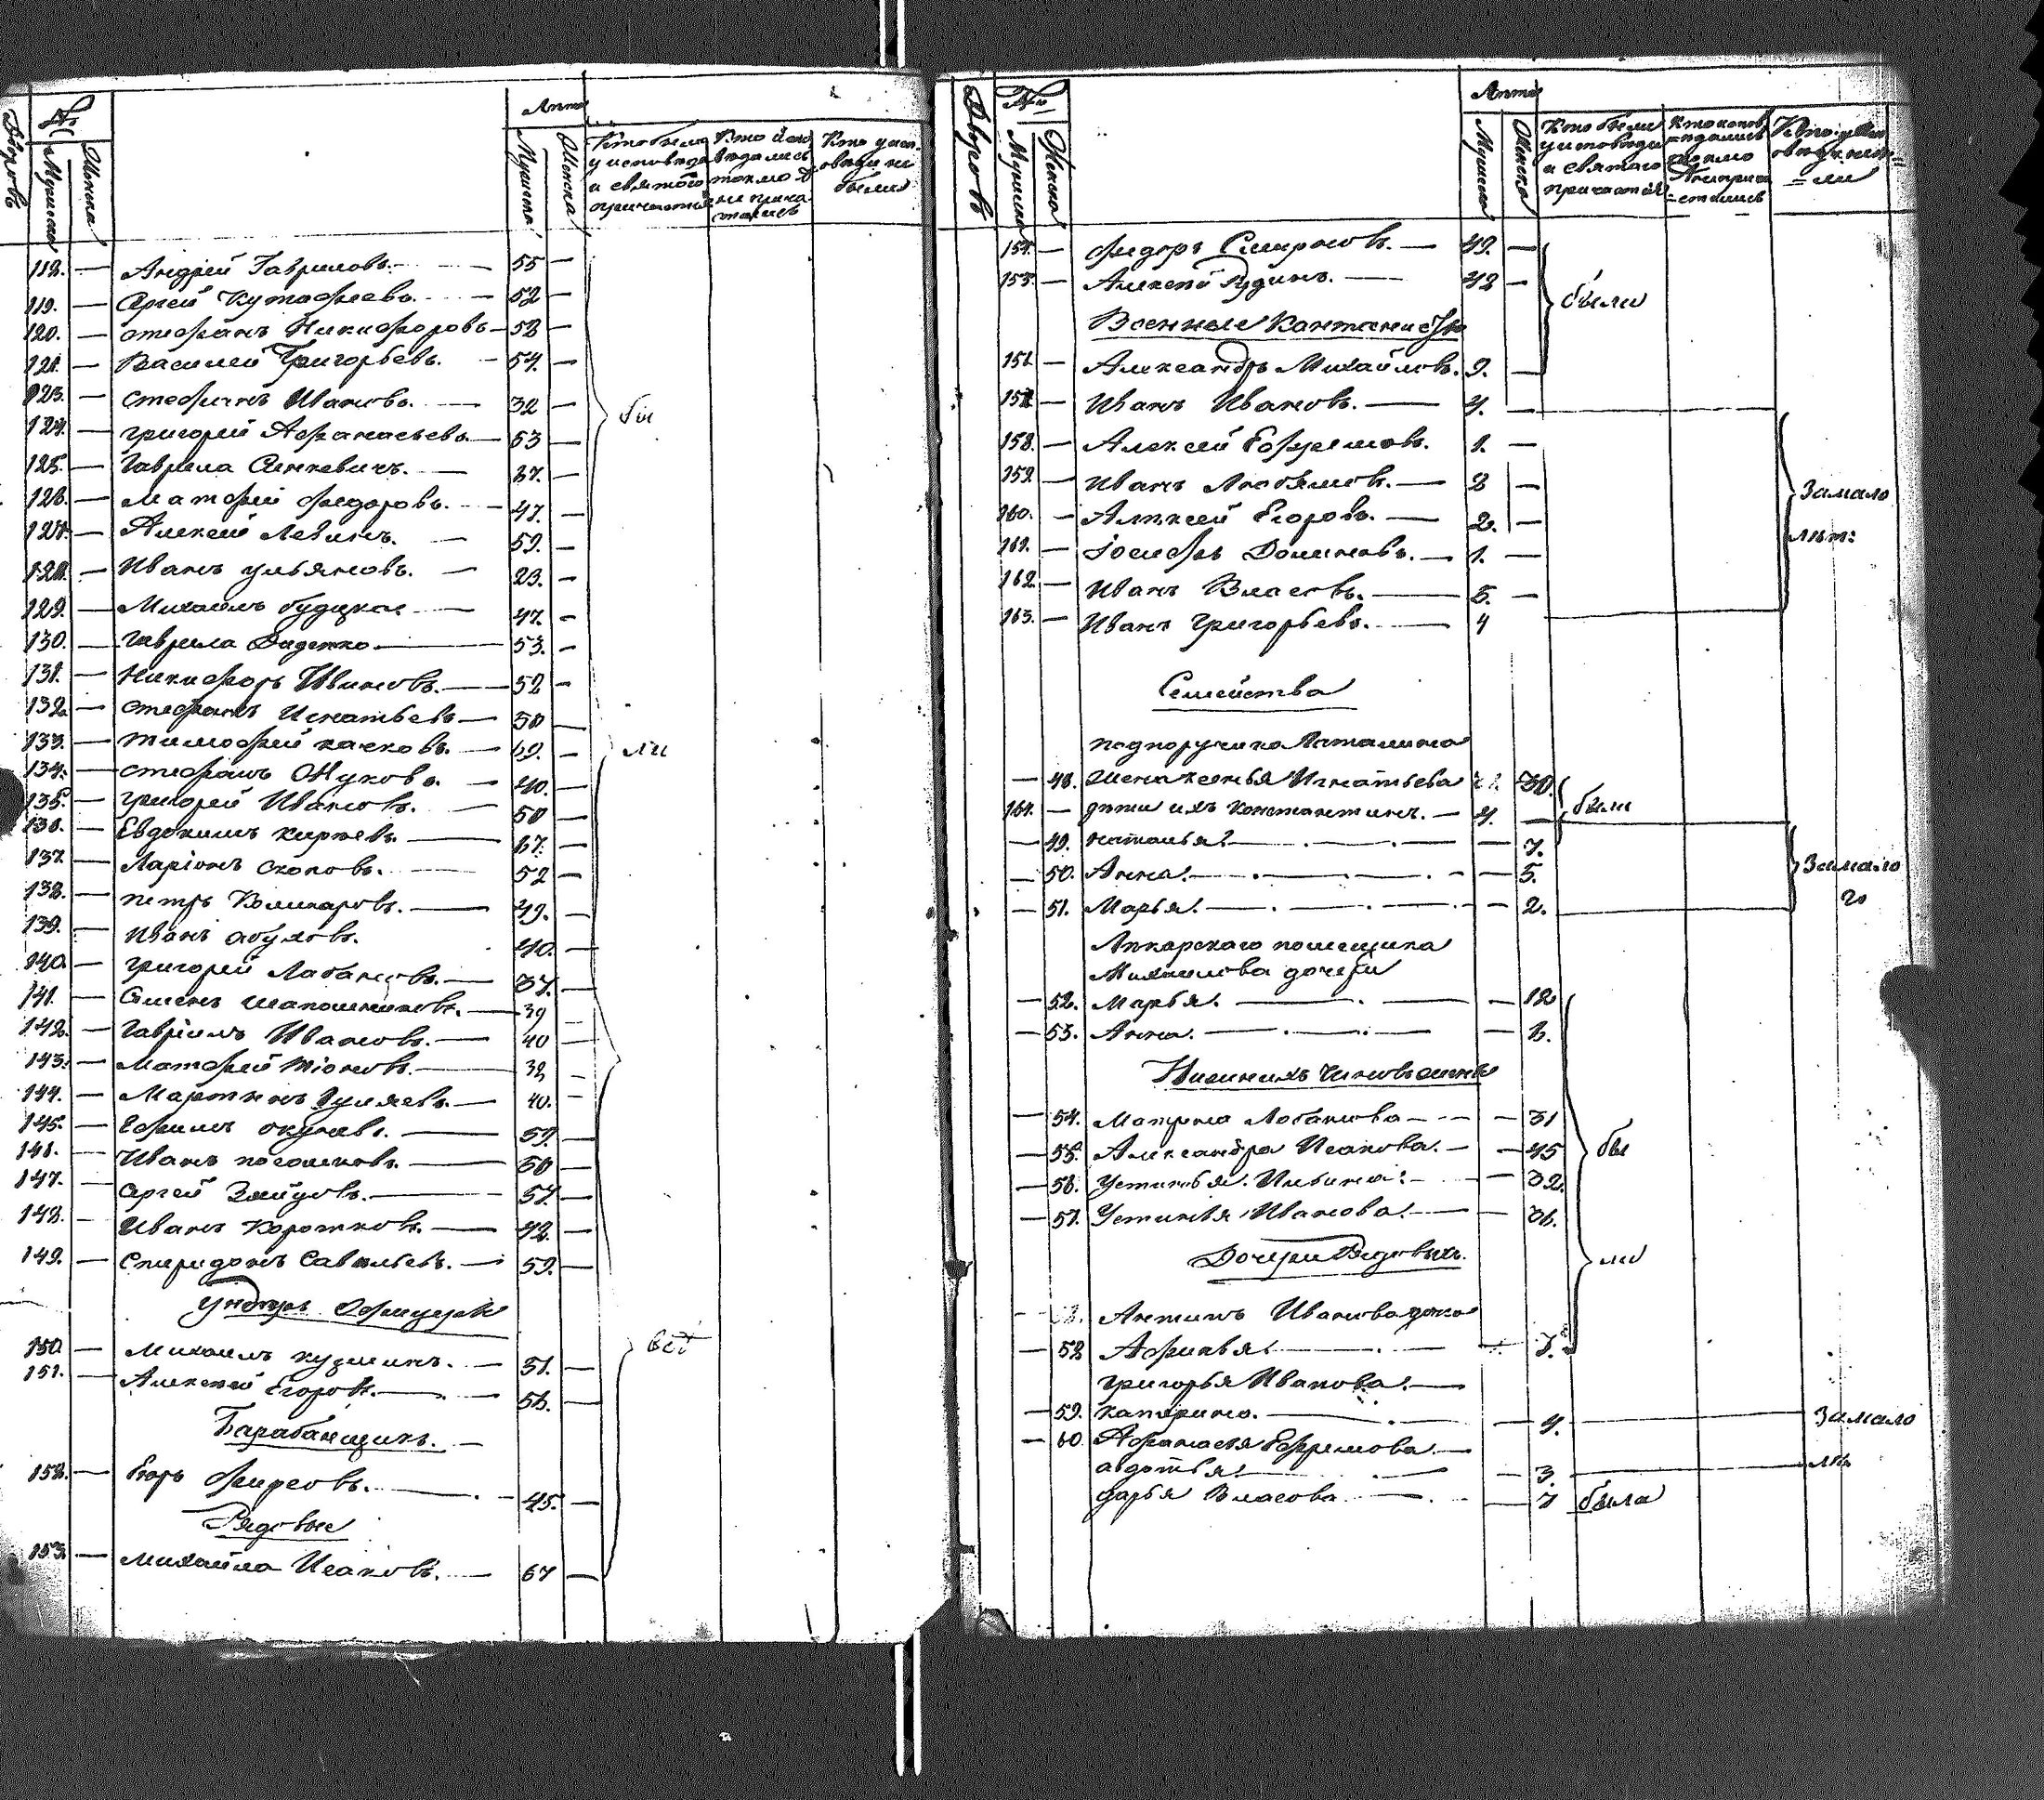 Дворовъ
№
Мужеска
Женска
Лета
Мужеска
Женска
Кто были
у исповеди
и святого
причастия
Кто испо
ведались
токмо а
не прича
стились
Кто у исп
оведи не
были
118. — Андрей Гавриловъ. — 55 —
119. — Сергей Кутафьевъ. — 52 —
120. — Стефанъ Никифоровъ — 58 —
121. — Василей Григорьевъ. — 54. —
123. — Стефанъ Ивановъ. — 32 —
124. — Григорей Афанасьевъ — 63 —
бы
125. — Гаврила Сенкевичъ. — 37. —
126. — Матфей Федоровъ. — 47. —
127. — Алексей Левинъ. — 59. —
128. — Иванъ Ульяновъ. — 23. —
129. — Михаилъ — 47. —
130. — Гаврила Диденко — 53. —
131. — Никифоръ Ивановъ. — 52 —
132. — Стефанъ Игнатьевъ — 50 —
133. — Тимофей Качковъ. — 69. —
ли
134. — Стефанъ Жуковъ. — 40. —
135. — Григорей Ивановъ. — 50 —
136. — Евдокимъ — 67. —
137. — Ларіонъ Скоповъ. — 52 —
138. — Петръ Комисаровъ. — 49. —
139. — Иванъ Абуловъ. 40. —
140. — Григорей Лабановъ. — 37. —
141. — Семенъ Шапошниковъ. — 39 —
142. — Гавріилъ Ивановъ. — 40 —
143. — Матфей Тіоновъ. — 38 —
144. — Мартинъ Гуляевъ. — 40. —
145. — Ефимъ Окуневъ. — 59. —
146. — Иванъ — 50 —
147. — Сергей Зайцовъ. — 57. —
148. — Иванъ Коротковъ. — 42. —
149. — Спиридонъ Савельевъ. — 59. —
Ундеръ Офицеры
150 — Михаилъ Кузминъ. — 51. —
все
151. — Алексей Егоровъ. — 56. —
Барабанщикъ. —
152. — Егоръ Фирсовъ. — 45. —
Рядовые
153. — Михайла Исаковъ. — 67 —
Дворовъ
№
Мужеска
Женска
Лета
Мужеска
Женска
Кто были
у исповеди
и святаго
причастия
Кто испов
едались
токмо
а неприча
стились
Кто у исп
оведи не бы
ли
154. — Федоръ Смирновъ. — 49. —
155. — Алексей Юдинъ. — 42 —
были
Военные Кантанисты
156. — Александръ Михайловъ. 9. —
157. — Иванъ Ивановъ. — 4. —
158. — Алексей Ефремовъ. 1. —
159. — Иванъ Любимовъ. — 3 —
Замало
160. — Алексей Егоровъ. — 2. —
лет:
161. — Іосифъ Доминовъ. — 1. —
162. — Иванъ Власовъ. — 5. —
163. — Иванъ Григорьевъ. — 4
Семейства
подпоручика
— 48. Жена Ксенья Игнатьева 30.
164. — дети ихъ Константинъ. — 4. —
были
— 49. Наталья. — 7.
— 50. Анна. — 5.
Замало
— 51. Марья. — 2.
го
Лекарскаго помощника
Михаилова дочери
— 52. Марья. — 12
— 53. Анна. — 6.
Нижнихъ Чиновъ жены
— 54. Матрена Лобанова — 31
— 55. Александра Исакова. — 45
бы
— 56. Устинья Ильина: — 32.
— 57. Устинья Иванова. — 36.
Дочери Рядовыхъ.
ли
Антипъ Иванова дочь
— 58 Афимья. — 7.
Григорья Иванова. —
— 59. Катерина. — 4. — Замало
— 60 Афанасья Ефремова —
Авдотья. — 3. — лет
Дарья Власова — 7 была